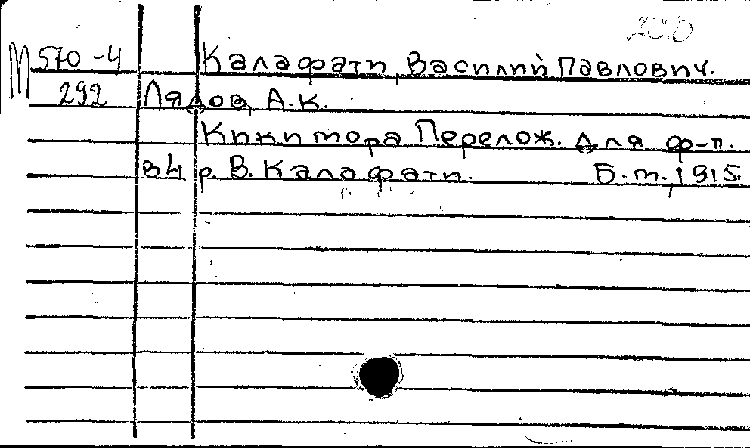 М 570-4 Калафати, Василий Павлович.
292 Лядов, А.К.
Кикимора Перелож. для ф-п.
в 4 р. В. Калафати. Б.т., 1915.